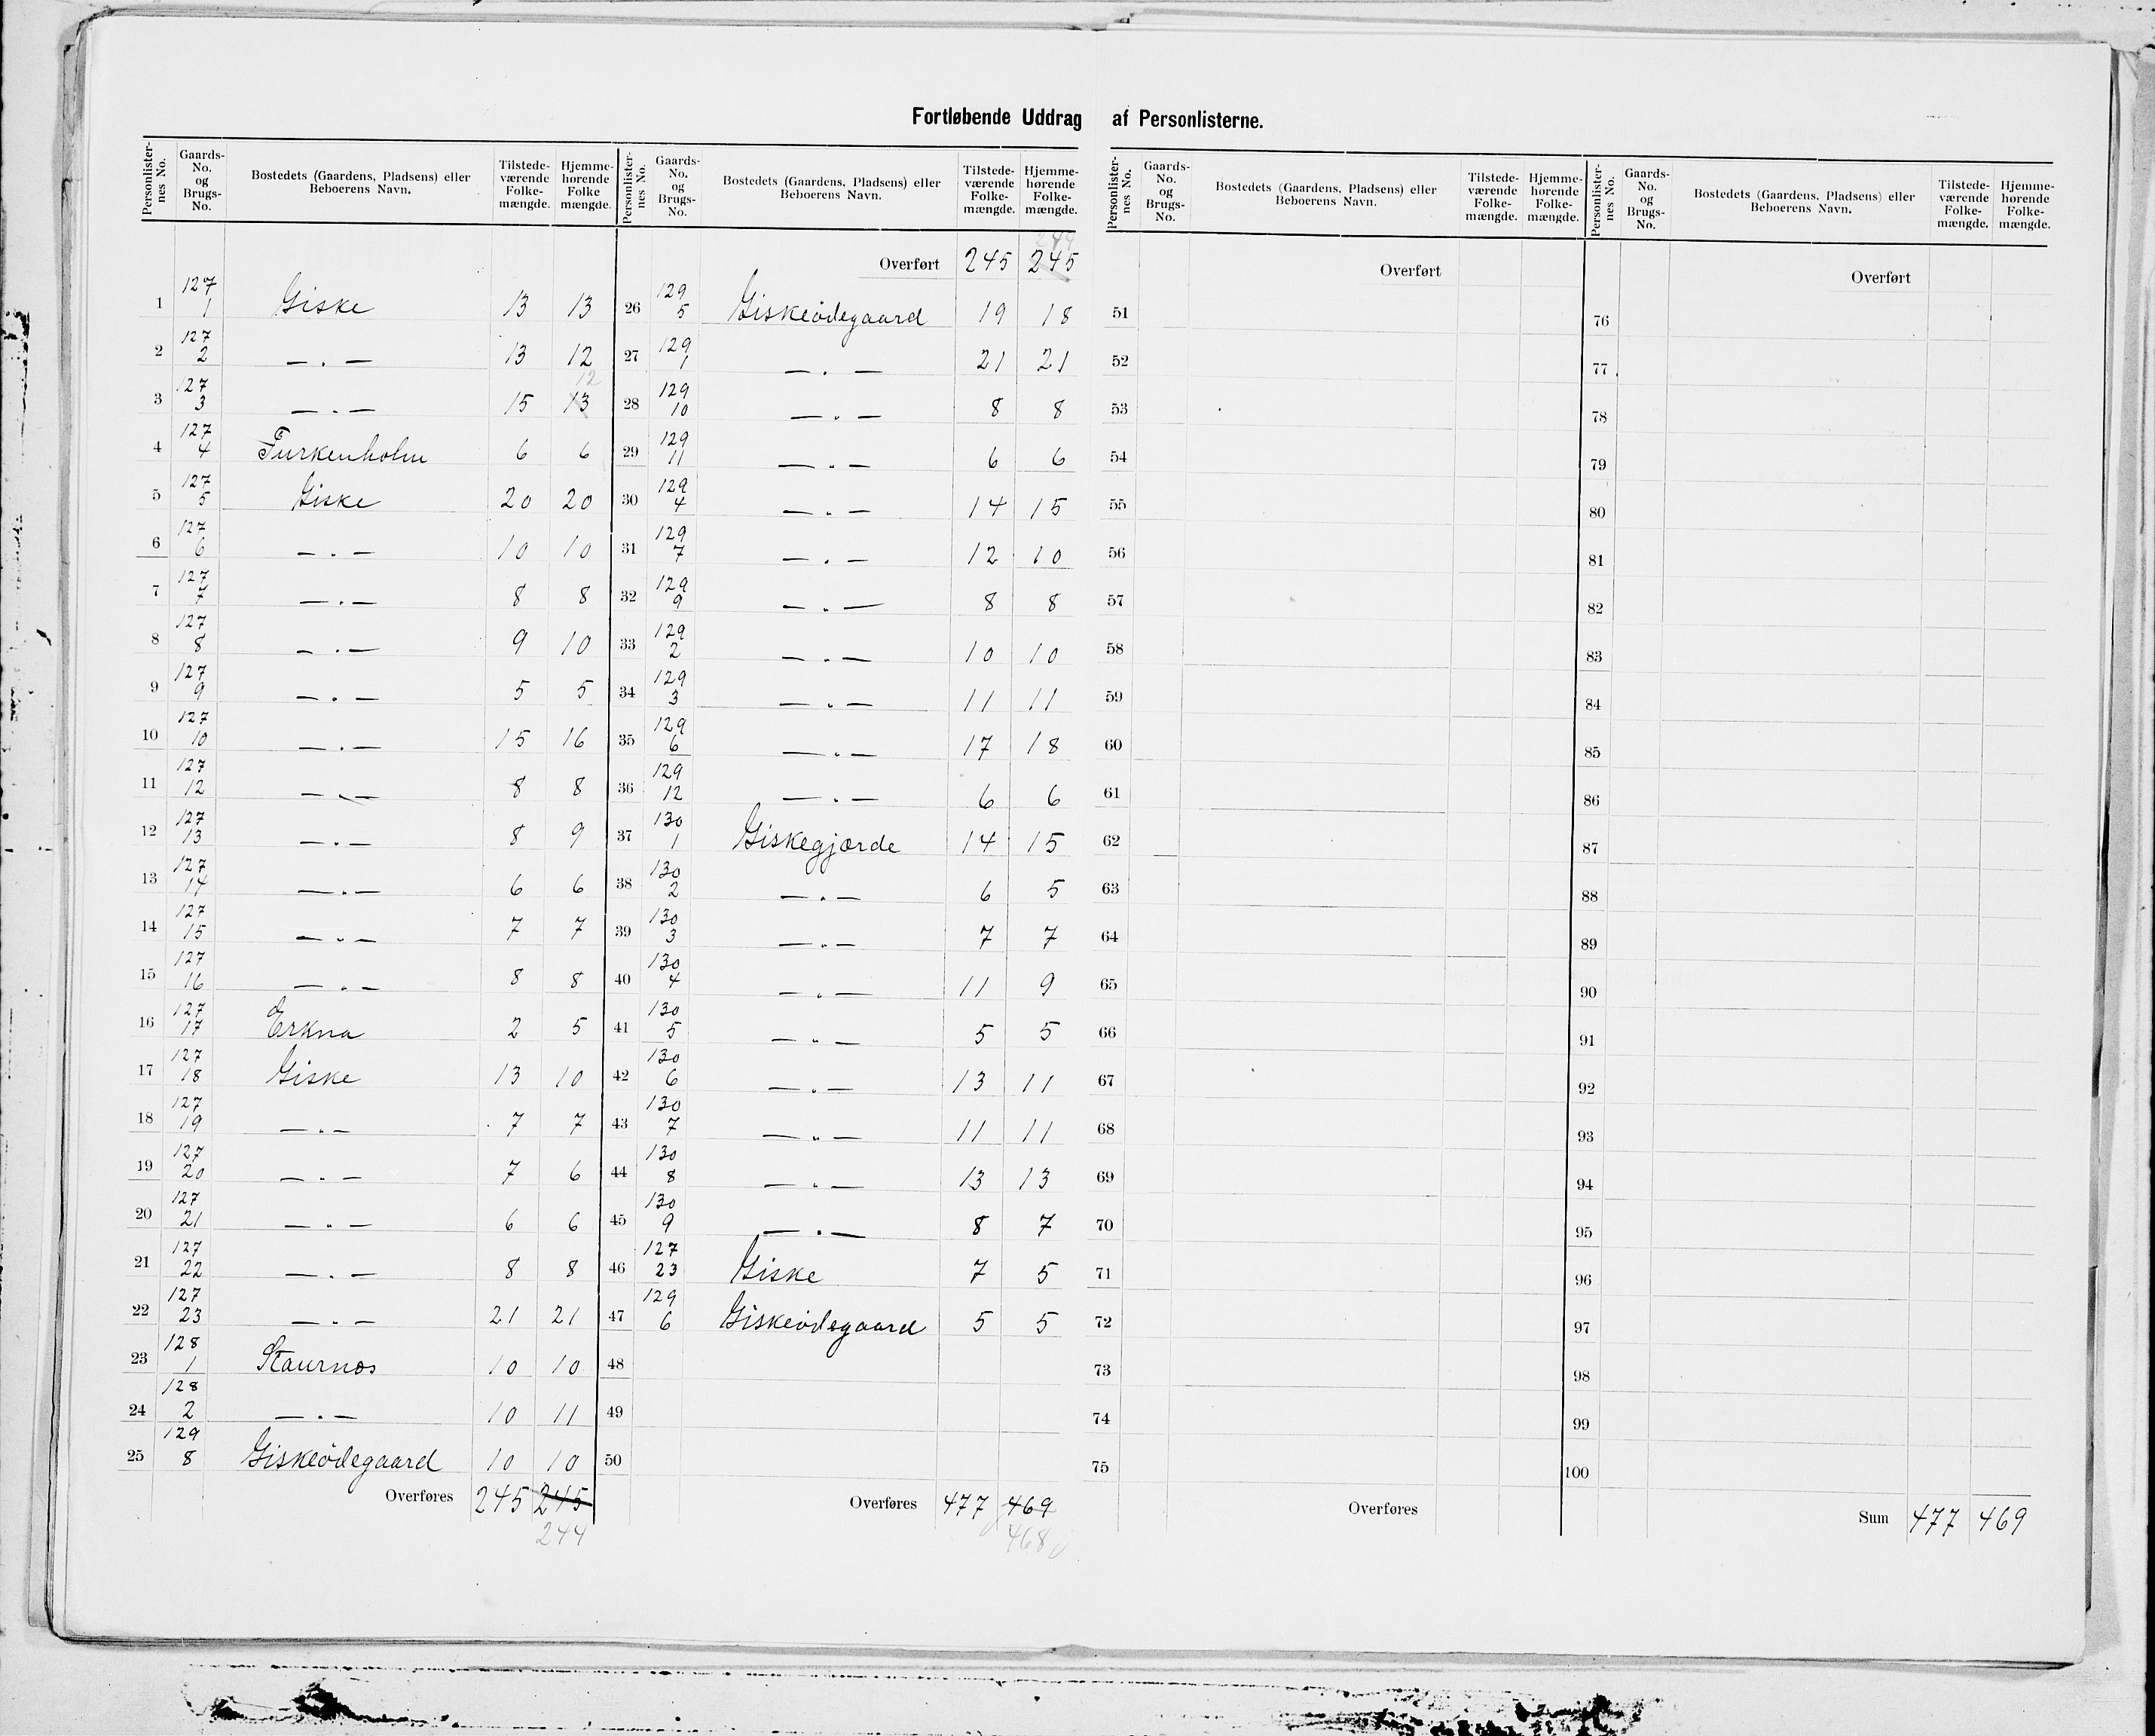 Fortløbende Uddrag af Personlisterne.
Personlister-nes No. | Gaards-No. og Brugs-No. | Bostedets (Gaardens, Pladsens) eller Beboerens Navn. | Tilstede-værende Folke-mængde. | Hjemme-hørende Folke mængde.
1 | 127 1 | Giske | 13 | 13
2 | 127 2 | — . — | 13 | 12
3 | 127 3 | — . — | 15 | 13 12
4 | 127 4 | Furkenholm | 6 | 6
5 | 127 5 | Giske | 20 | 20
6 | 127 6 | — . — | 10 | 10
7 | 127 7 | — . — | 8 | 8
8 | 127 8 | — . — | 9 | 10
9 | 127 9 | — . — | 5 | 5
10 | 127 10 | — . — | 15 | 16
11 | 127 12 | — . — | 8 | 8
12 | 127 13 | — . — | 8 | 9
13 | 127 14 | — . — | 6 | 6
14 | 127 15 | — „ — | 7 | 7
15 | 127 16 | — . — | 8 | 8
16 | 127 17 | Erkna | 2 | 5
17 | 127 18 | Giske | 13 | 10
18 | 127 19 | — „ — | 7 | 7
19 | 127 20 | — . — | 7 | 6
20 | 127 21 | — „ — | 6 | 6
21 | 127 22 | — . — | 8 | 8
22 | 127 23 | — „ — | 21 | 21
23 | 128 1 | Staurnes | 10 | 10
24 | 128 2 | — . — | 10 | 11
25 | 129 8 | Giskeödegaard | 10 | 10
Overføres | 245 | 245
244
Personlister-nes No. | Gaards-No. og Brugs-No. | Bostedets (Gaardens, Pladsens) eller Beboerens Navn. | Tilstede-værende Folke-mængde. | Hjemme-hørende Folke-mængde.
244
Overført | 245 | 245
26 | 129 5 | Giskeödegaard | 19 | 18
27 | 129 1 | — . — | 21 | 21
28 | 129 10 | — „ — | 8 | 8
29 | 129 11 | — „ — | 6 | 6
30 | 129 4 | — „ — | 14 | 15
31 | 129 7 | — . — | 12 | 10
32 | 129 9 | — „ — | 8 | 8
33 | 129 2 | — „ — | 10 | 10
34 | 129 3 | — „ — | 11 | 11
35 | 129 6 | — „ — | 17 | 18
36 | 129 12 | — . — | 6 | 6
37 | 130 1 | Giskegjerde | 14 | 15
38 | 130 2 | — . — | 6 | 5
39 | 130 3 | — „ — | 7 | 7
40 | 130 4 | — „ — | 11 | 9
41 | 130 5 | — „ — | 5 | 5
42 | 130 6 | — „ — | 13 | 11
43 | 130 7 | — „ — | 11 | 11
44 | 130 8 | — „ — | 13 | 13
45 | 130 9 | — . — | 8 | 7
46 | 127 23 | Giske | 7 | 5
47 | 129 6 | Giskeödegaard | 5 | 5
48
49
50
Overføres | 477 | 469
468
Personlister-nes No. | Gaards-No. og Brugs-No. | Bostedets (Gaardens, Pladsens) eller Beboerens Navn. | Tilstede-værende Folke-mængde. | Hjemme-hørende Folke-mængde.
Overført
51
52
53
54
55
56
57
58
59
60
61
62
63
64
65
66
67
68
69
70
71
72
73
74
75
Overføres
Personlister-nes No. | Gaards-No. og Brugs-No. | Bostedets (Gaardens, Pladsens) eller Beboerens Navn. | Tilstede-værende Folke-mængde. | Hjemme-hørende Folke-mængde.
Overført
76
77
78
79
80
81
82
83
84
85
86
87
88
89
90
91
92
93
94
95
96
97
98
99
100
Sum | 477 | 469